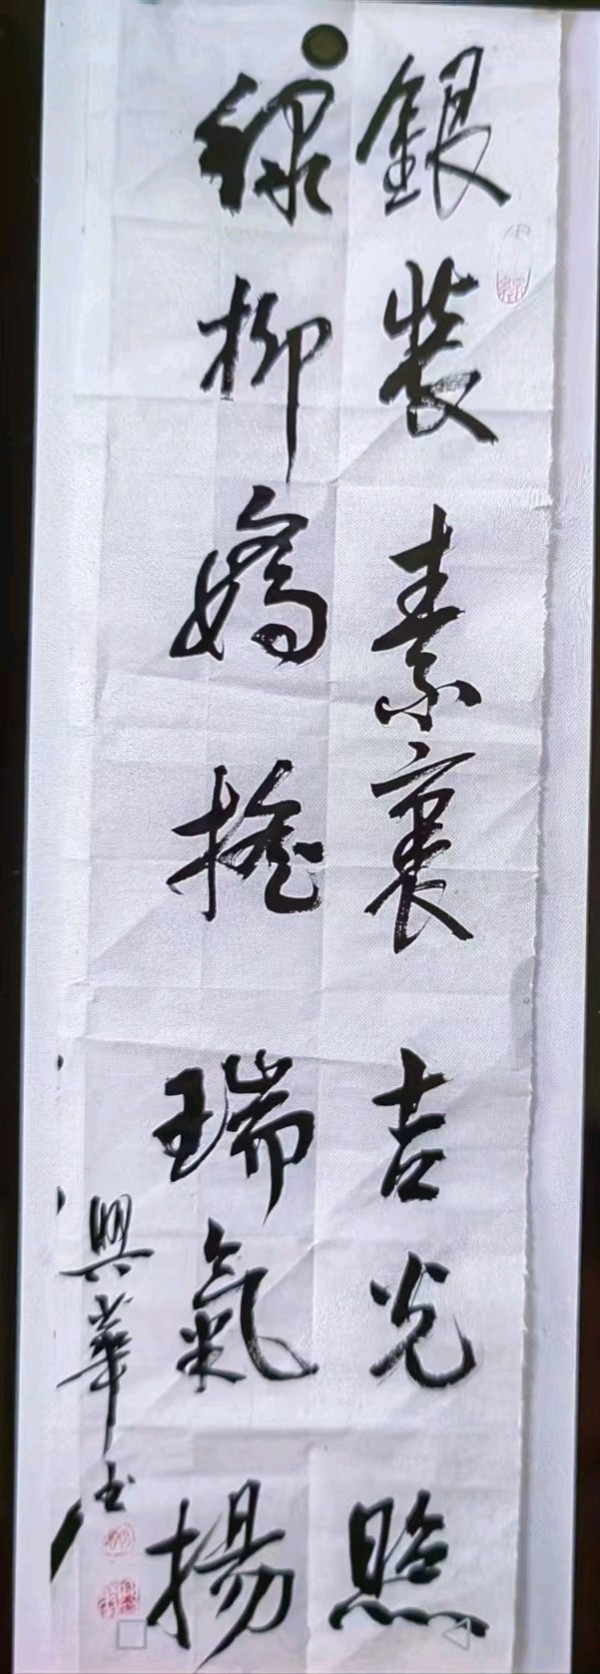 銀裝素裹吉光照
綠柳嬌搖瑞氣揚
興華书